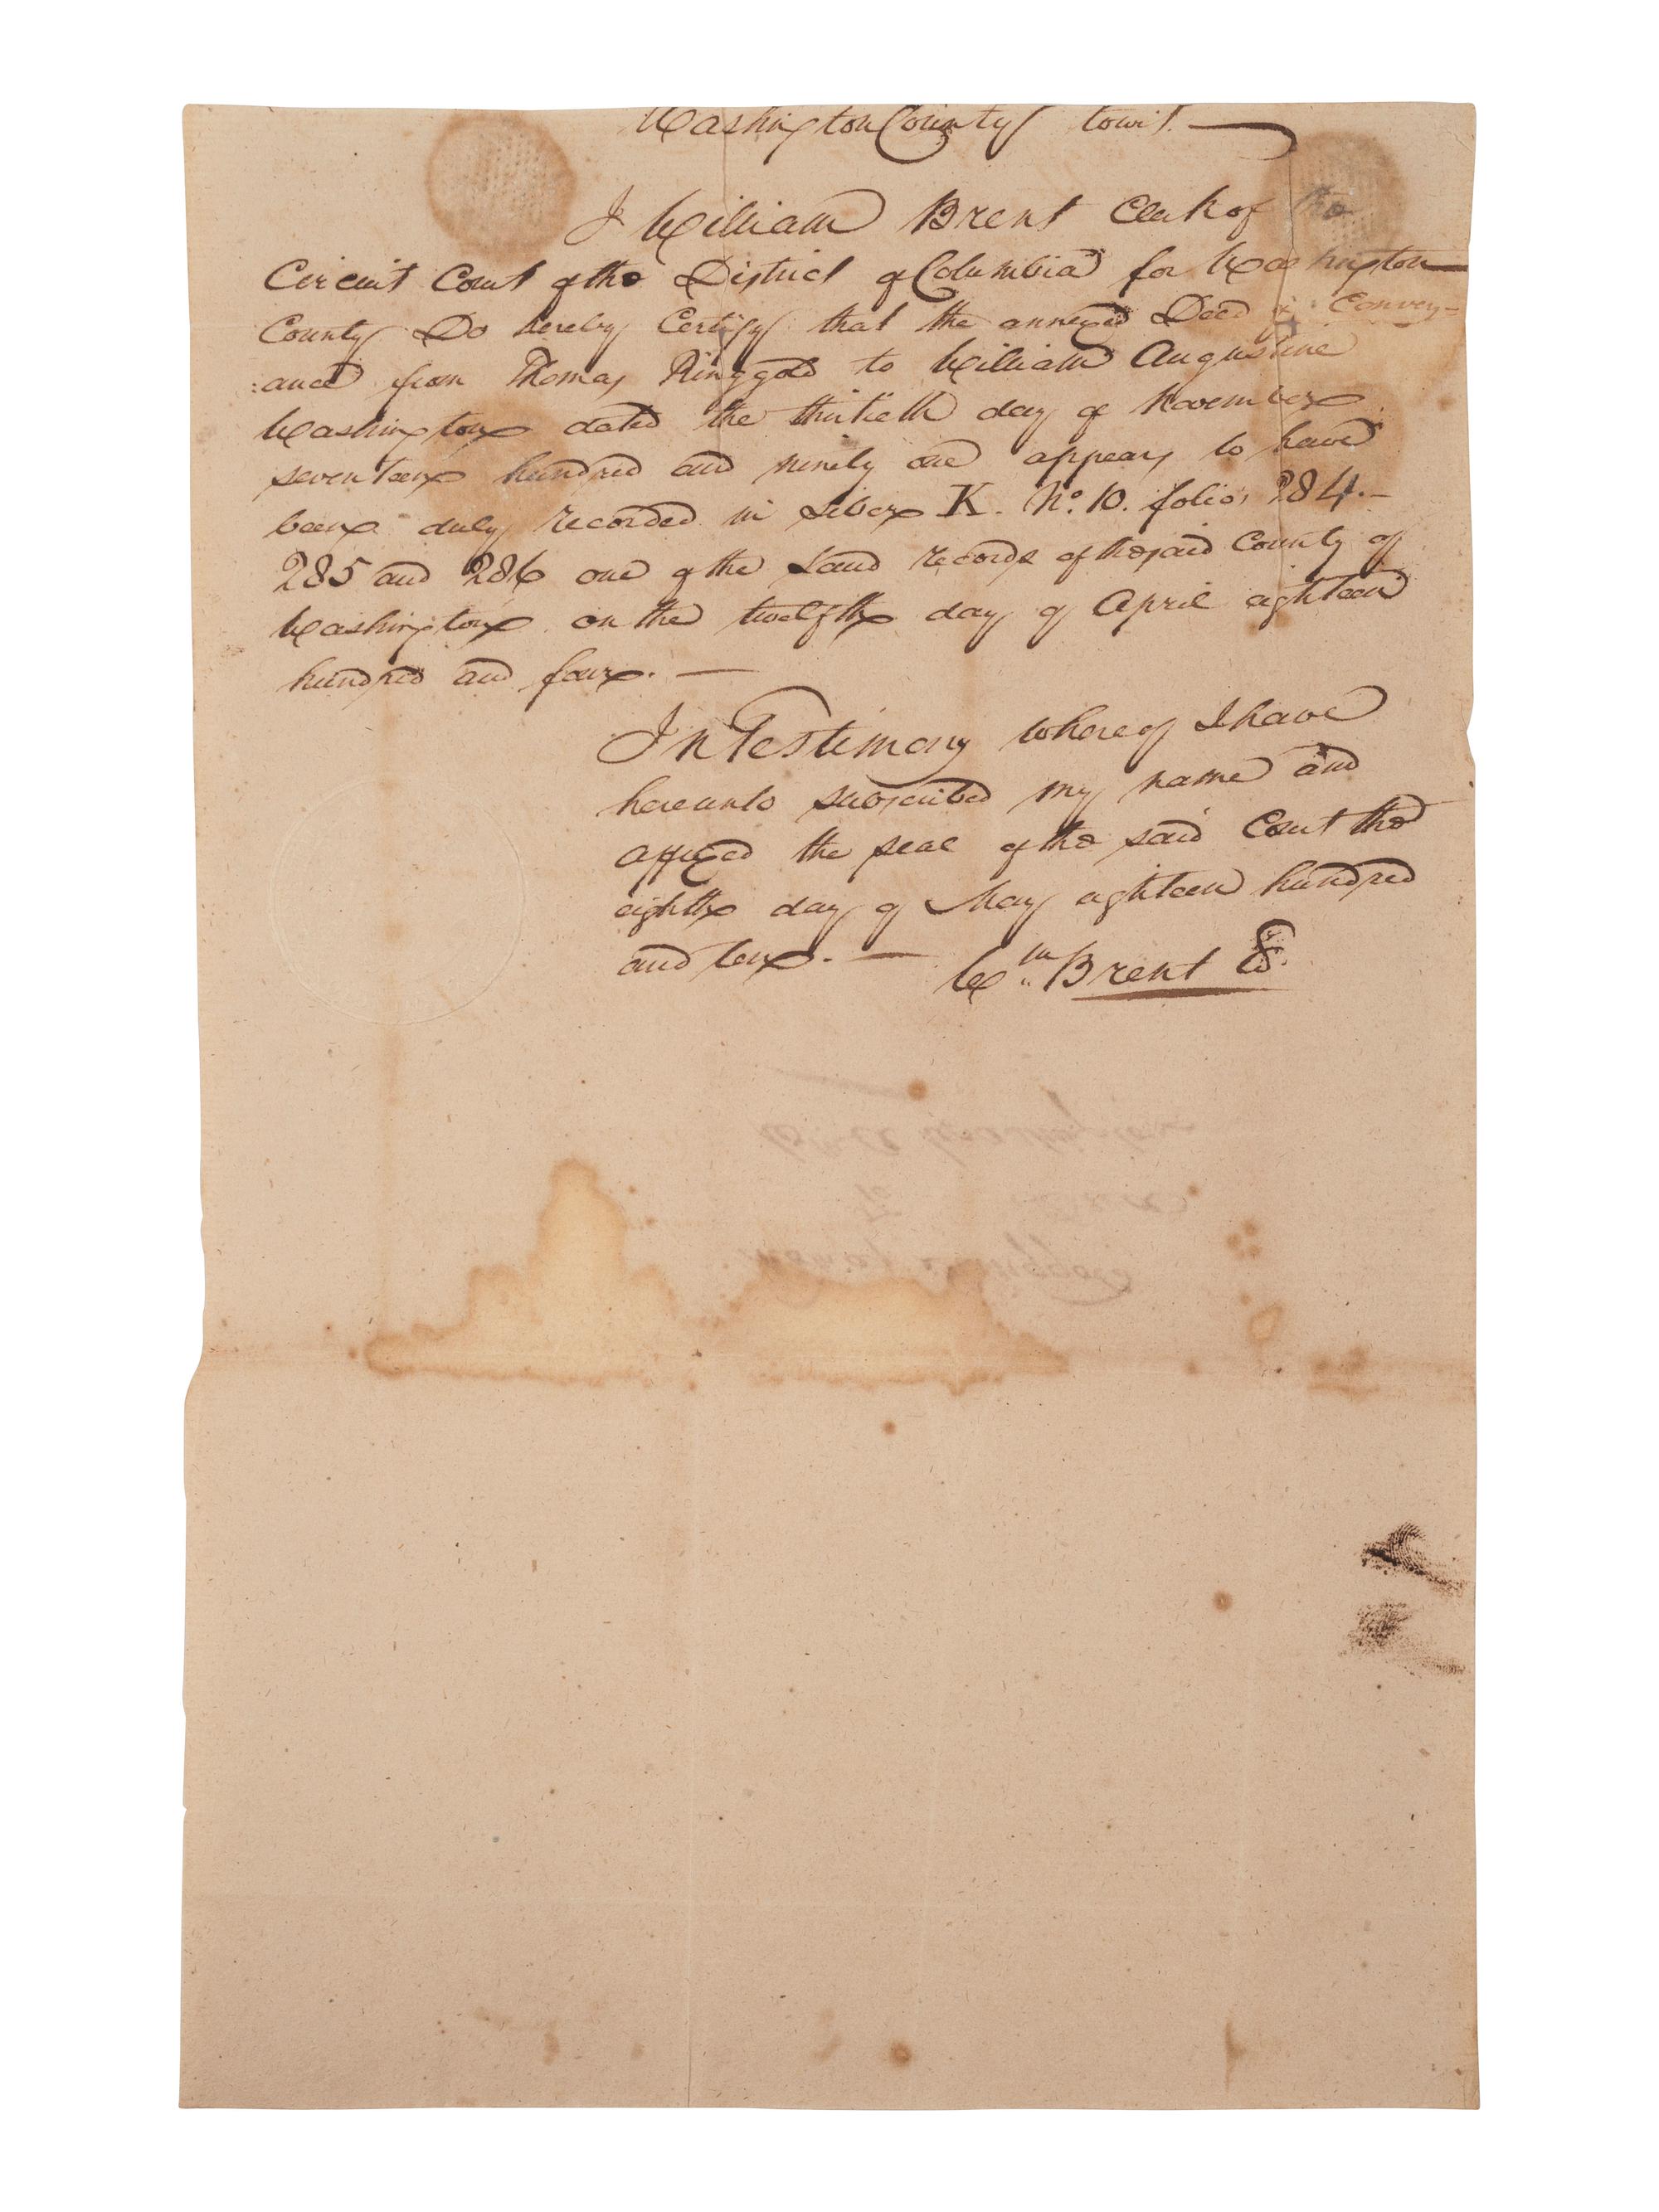 Washington County towit. —
I William Brent Clerk of the
Circuit Court of the District of Columbia for Washington
County Do hereby Certify that the annexed Deed of Convey-
:ance from Thomas Ringgold to William Augustine
Washington dated the thirtieth day of November
seventeen hundred and ninety one appears to have
been duly recorded in Liber K. No. 10. folios 284.-
285 and 286 one of the Land records of the said County of
Washington on the twelfth day of April eighteen
hundred and four. —
In Testimony whereof I have
hereunto subscribed my name and
affixed the seal of the said Court the
eighth day of May eighteen hundred
and ten. —
Wm Brent